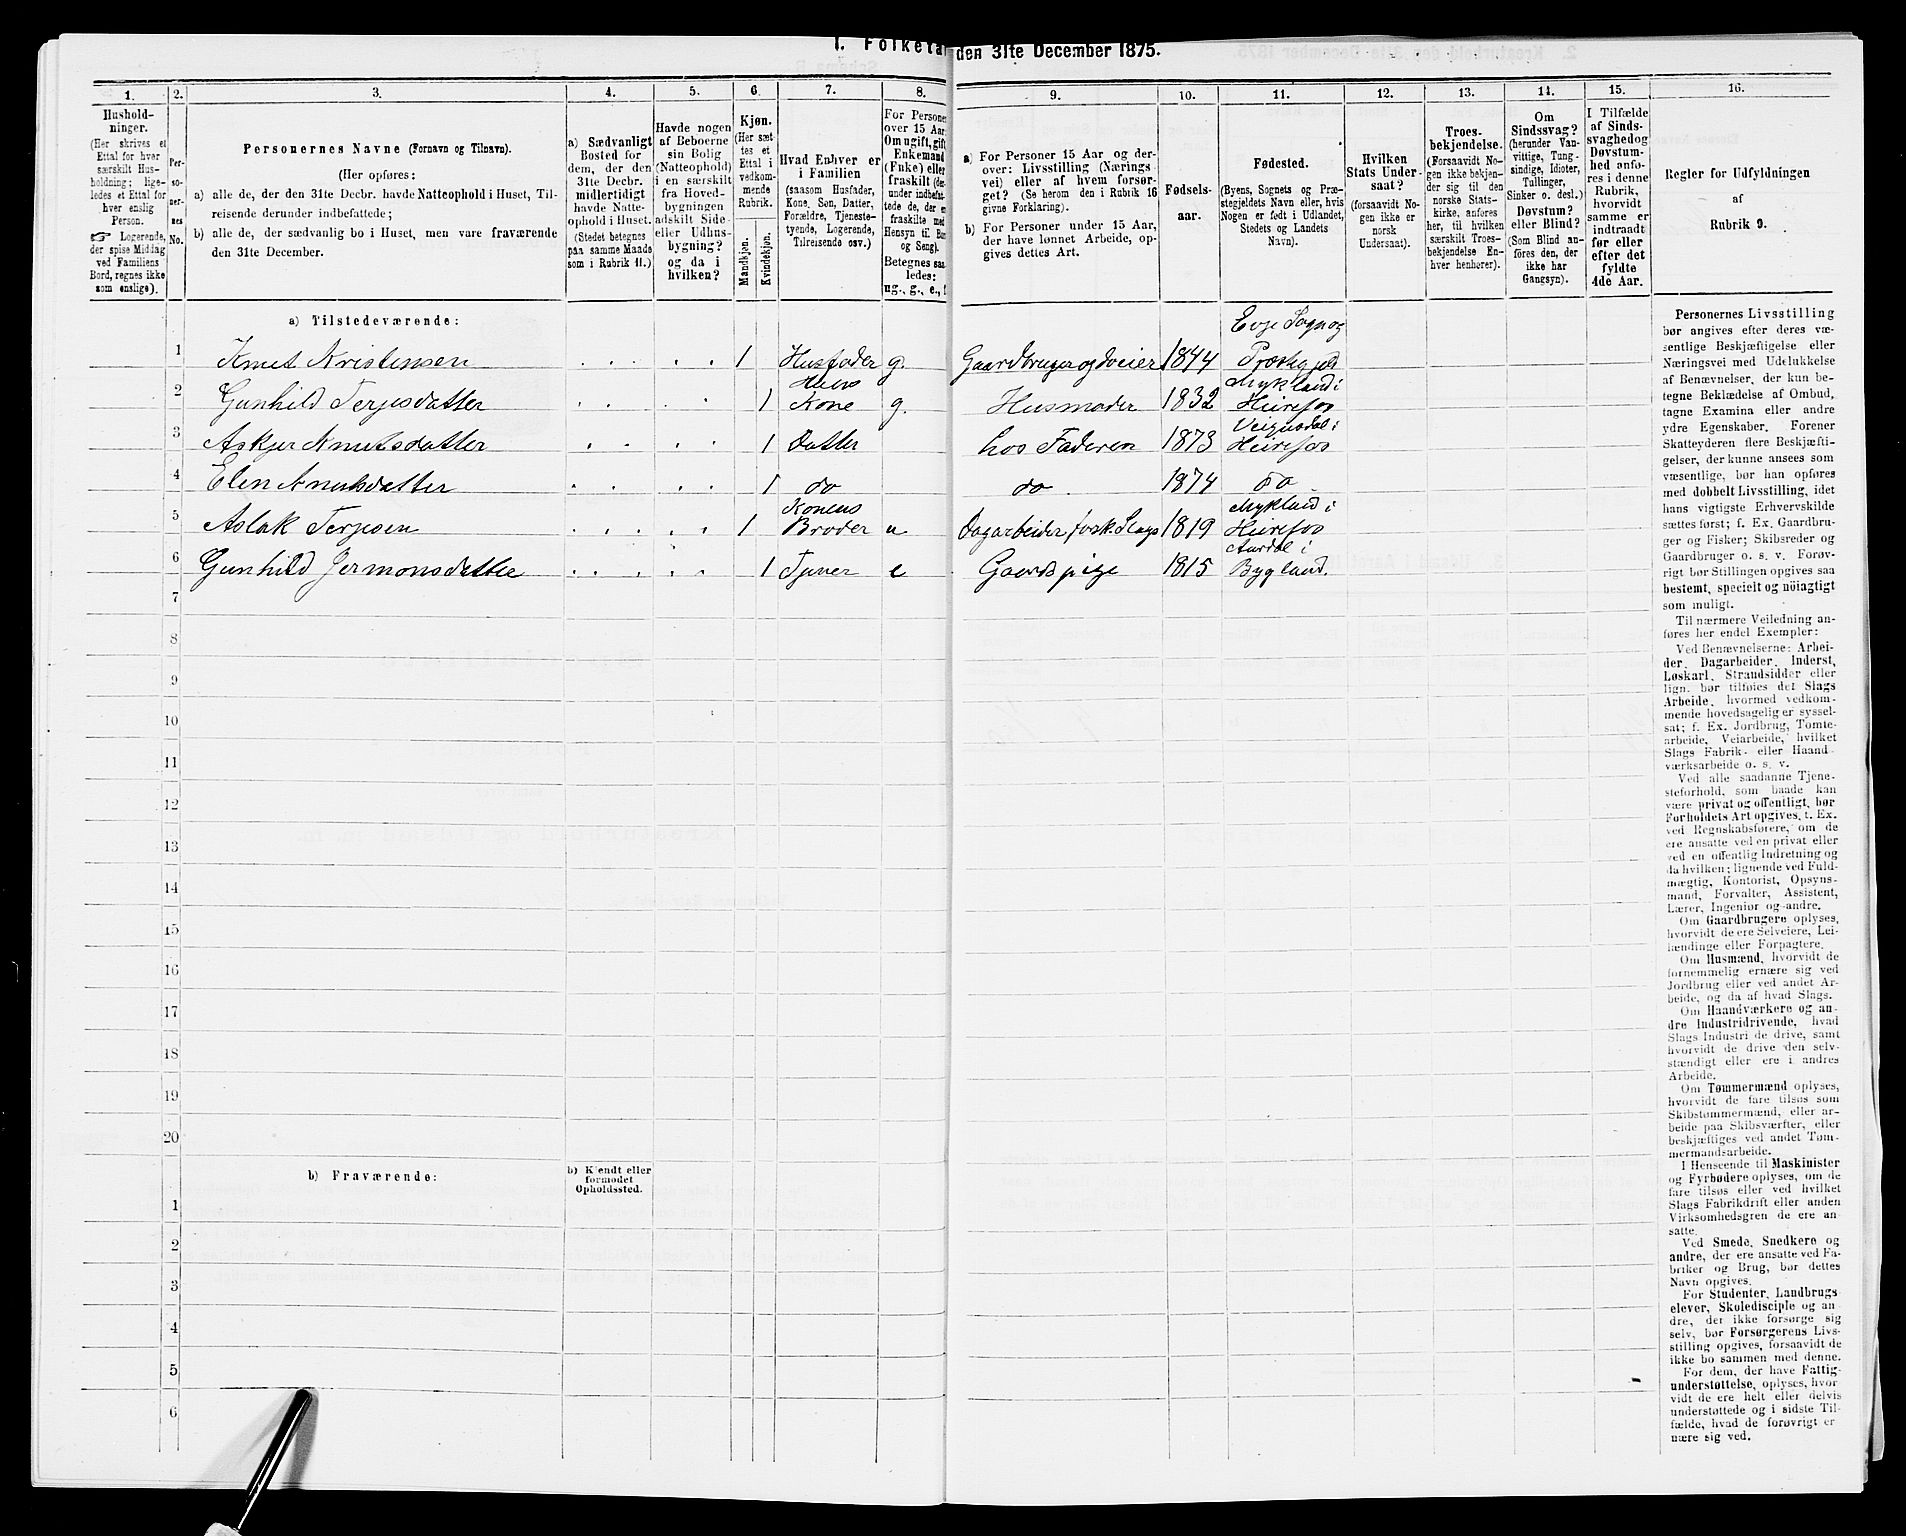 1. Folketæ
den 31te December 1875.
1. 2. 3. 4. 5. 6. 7. 8. 9. 10. 11. 12. 13. 14. 15. 16.
Hushold-
ninger.
(Her skrives et
Ettal for hver
særskilt Hus-
holdning; lige-
ledes et Ettal for
hver enslig
Person.
☞ Logerende,
der spise Middag
ved Familiens
Bord, regnes ikke
som enslige).
Per-
so-
ner-
nes
No.
Personernes Navne (Fornavn og Tilnavn).
(Her opføres:
a) alle de, der den 31te Decbr. havde Natteophold i Huset, Til-
reisende derunder indbefattede;
b) alle de, der sædvanlig bo i Huset, men vare fraværende
den 31te December.
a) Sædvanligt
Bosted for
dem, der den
31te Decbr.
midlertidigt
havde Natte-
ophold i Huset.
(Stedet betegnes
paa samme Maade
som i Rubrik 11.)
Havde nogen
af Beboerne
sin Bolig
(Natteophold)
i en særskilt
fra Hoved-
bygningen
adskilt Side-
eller Udhus-
bygning?
og da i
hvilken?
Kjøn.
(Her sæt-
tes et
Ettal i
vedkom-
mende
Rubrik.
Mandkjøn.
Kvindekjøn.
Hvad Enhver er
i Familien
(saasom Husfader,
Kone, Søn, Datter,
Forældre, Tjeneste-
tyende, Logerende,
Tilreisende osv.)
For Personer
over 15 Aar:
Om ugift, gift
Enkemand
(Enke) eller
fraskilt (der-
under indbefat-
tede de, der er
fraskilte med
Hensyn til Bord
og Seng).
Betegnes saa-
ledes:
ug., g., e., f.
a) For Personer 15 Aar og der-
over: Livsstilling (Nærings-
vei) eller af hvem forsør-
get? (Se herom den i Rubrik 16
givne Forklaring).
b) For Personer under 15 Aar,
der have lønnet Arbeide, op-
gives dettes Art.
Fødsels-
aar.
Fødested.
(Byens, Sognets og Præ-
stegjeldets Navn eller, hvis
Nogen er født i Udlandet,
Stedets og Landets
Navn).
Hvilken
Stats Under-
saat?
(forsaavidt No-
gen ikke er
norsk
Undersaat).
Troes-
bekjendelse.
(Forsaavidt No-
gen ikke bekjen-
der sig til den
norske Stats-
kirke, anføres
her, til hvilken
særskilt Troes-
bekjendelse En-
hver henhører).
Om
Sindssvag?
(herunder Van-
vittige, Tung-
sindige, Idioter,
Tullinger,
Sinker o. desl.)
Døvstum?
eller Blind?
(Som Blind an-
føres den, der
ikke har
Gangsyn).
I Tilfælde
af Sinds-
svaghed og
Døvstum-
hed anfø-
res i denne
Rubrik,
hvorvidt
samme er
indtraadt
før eller
efter det
fyldte
4de Aar.
Regler for Udfyldningen
af
Rubrik 9.
a) Tilstedeværende:
1 Knut Kristensen 1 Husfader g. Gaardbruger og Selveier 1844 Evje Sogn og Præstegjeld
2 Gunhild Terjesdatter 1 Hans Kone g. Husmoder 1832 Mykland i Heirefos
3 Askjer Knutsdatter 1 Datter hos Faderen 1873 Veigusdal i Heirefos
4 Elen Knutsdatter 1 do do 1874 Do
5 Aslak Terjesen 1 Konens Broder u Dagarbeider forsk. Slags 1819 Mykland i Heirefos
6 Gunhild Jermonsdatter 1 Tjener e Gaardspige 1815 Aardal i Bygland.
7
8
9
10
11
12
13
14
15
16
17
18
19
20
b) Fraværende:
b) Kjendt eller
formodet
Opholdssted.
1
2
3
4
5
6
Personernes Livsstilling
bør angives efter deres væ-
sentlige Beskjæftigelse eller
Næringsvei med Udelukkelse
af Benævnelser, der kun be-
tegne Beklædelse af Ombud,
tagne Examina eller andre
ydre Egenskaber. Forener
Skatteyderen flere Beskjæfti-
gelser, der kunne ansees som
væsentlige, bør han opføres
med dobbelt Livsstilling, idet
hans vigtigste Erhvervskilde
sættes først; f. Ex. Gaardbru-
ger og Fisker; Skibsreder og
Gaardbruger o. s. v. Forøv-
rigt bør Stillingen opgives saa
bestemt, specielt og nöiagtigt
som muligt.
Til nærmere Veiledning an-
føres her endel Exempler:
Ved Benævnelserne: Arbei-
der, Dagarbeider, Inderst,
Løskarl, Strandsidder eller
lign. bør tilføies det Slags
Arbeide, hvormed vedkom-
mende hovedsagelig er syssel-
sat; f. Ex. Jordbrug, Tomte-
arbeide, Veiarbeide, hvilket
Slags Fabrik- eller Haand-
værksarbeide o. s. v.
Ved alle saadanne Tjene-
steforhold, som baade kan
være privat og offentligt, bør
Forholdets Art opgives, t. Ex.
ved Regnskabsførere, om de
ere ansatte ved en privat eller
ved en offentlig Indretning og
da hvilken; lignende ved Fuld-
mægtig, Kontorist, Opsyns-
mand, Forvalter, Assistent,
Lærer, Ingeniør og andre.
Om Gaardbrugere oplyses,
hvorvidt de ere Selveiere, Lei-
lændinge eller Forpagtere.
Om Husmænd, hvorvidt de
fornemmelig ernære sig ved
Jordbrug eller ved andet Ar-
beide, og da af hvad Slags.
Om Haandværkere og an-
dre Industridrivende, hvad
Slags Industri de drive, samt
hvorvidt de drive den selv-
stændigt eller ere i andres
Arbeide.
Om Tømmermænd oplyses,
hvorvidt de fare tilsøs som
Skibstømmermænd, eller ar-
beide paa Skibsværfter, eller
beskjæftiges ved andet Tøm-
mermandsarbeide.
I Henseende til Maskinister
og Fyrbødere oplyses, om de
fare tilsøs eller ved hvilket
Slags Fabrikdrift eller anden
Virksomhedsgren de ere an-
satte.
Ved Smede, Snedkere og
andre, der ere ansatte ved Fa-
briker og Brug, bør dettes
Navn opgives.
For Studenter, Landbrugs-
elever, Skoledisciple og an-
dre, der ikke forsørge sig
selv, bør Forsørgerens Livs-
stilling opgives, forsaavidt de
ikke bo sammen med denne.
For dem, der have Fattig-
understøttelse, oplyses, hvor-
vidt de ere helt eller delvis
understøttede og i sidste Til-
fælde, hvad de forøvrigt er-
nære sig ved.